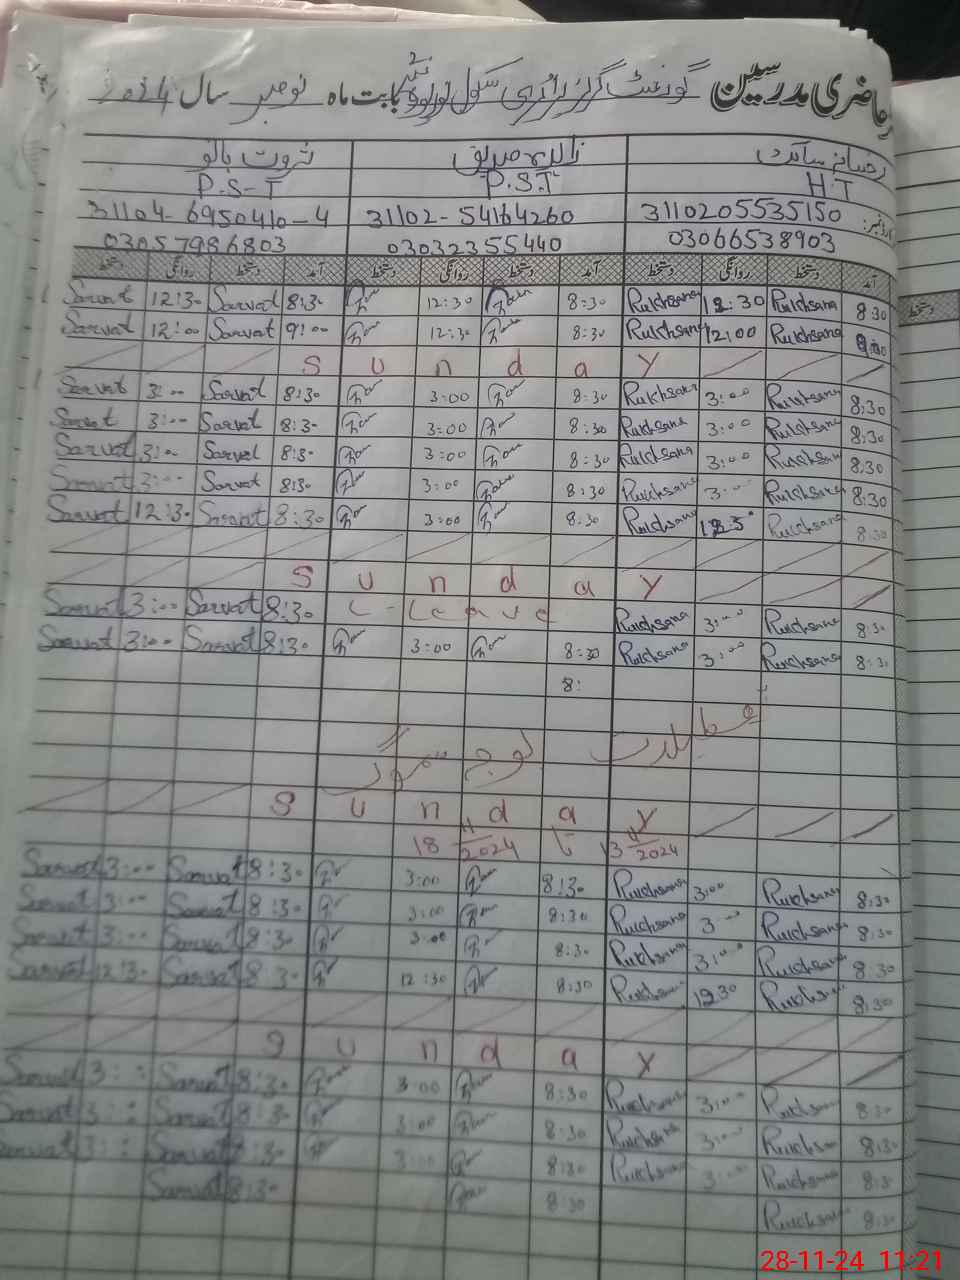 حاضری مدرسین گورنمنٹ گرلز پرائمری سکول بابت ماہ نومبر سال 2024
رخسانہ ... زاہدہ صدیق ثروت بانو
H.T P.S.T P.S-T
3110205535150 31102-54164260 31104-6950410-4
03066538903 03032355440 03057986803
آمد دستخط روانگی دستخط آمد دستخط روانگی دستخط آمد دستخط روانگی دستخط
Sarvat 12:30 Sarvat 8:30 12:30 8:30 Rukhsana 12:30 Rukhsana 8:30
Sarvat 12:00 Sarvat 9:00 12:30 8:30 Rukhsana 12:00 Rukhsana
Sunday
Sarvat 3:00 Sarvat 8:30 3:00 8:30 Rukhsana 3:00 Rukhsana 8:30
Sarvat 3:00 Sarvat 8:30 3:00 8:30 Rukhsana 3:00 Rukhsana 8:30
Sarvat 3:00 Sarvat 8:30 3:00 8:30 Rukhsana 3:00 Rukhsana 8:30
Sarvat 3:00 Sarvat 8:30 3:00 8:30 Rukhsana 3:00 Rukhsana 8:30
Sarvat 12:30 Sarvat 8:30 3:00 8:30 Rukhsana Rukhsana 8:30
Sunday
Sarvat 3:00 Sarvat 8:30 C-Leave Rukhsana 3:00 Rukhsana 8:30
Sarvat 3:00 Sarvat 8:30 3:00 8:30 Rukhsana 3:00 Rukhsana 8:30
8:
تعطیلات بوجہ سموگ
Sunday
18/11/2024 تا 13/11/2024
Sarvat 3:00 Sarvat 8:30 3:00 8:30 Rukhsana 3:00 Rukhsana 8:30
Sarvat 3:00 Sarvat 8:30 3:00 8:30 Rukhsana 3:00 Rukhsana 8:30
Sarvat 3:00 Sarvat 8:30 3:00 8:30 Rukhsana 3:00 Rukhsana 8:30
Sarvat 12:30 Sarvat 8:30 12:30 8:30 Rukhsana 1230 Rukhsana 8:30
Sunday
Sarvat 3:00 Sarvat 8:30 3:00 8:30 Rukhsana 3:00 Rukhsana 8:30
Sarvat 3:00 Sarvat 8:30 3:00 8:30 Rukhsana 3:00 Rukhsana 8:30
Sarvat 3:00 Sarvat 8:30 3:00 8:30 Rukhsana 3:00 Rukhsana 8:30
Sarvat 8:30 8:30 Rukhsana 8:30
28-11-24 11:21